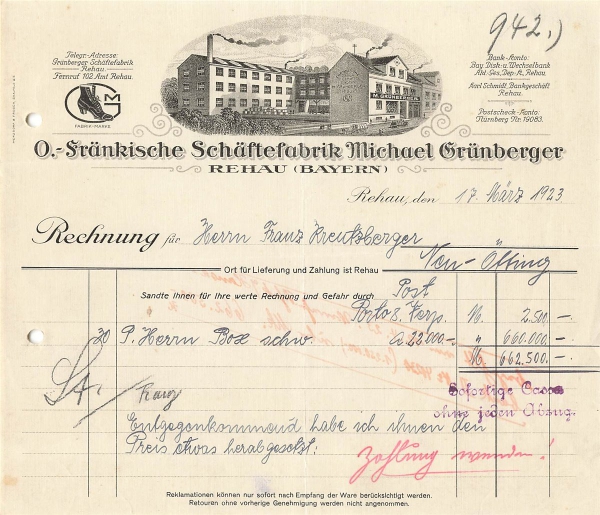 942.)
Telegr.-Adresse:
Grünberger Schäftefabrik
Rehau.
Fernruf 102 Amt Rehau.
G M
FABRIK-MARKE
Bank-Konto:
Bay. Disk.- u. Wechselbank
Akt.-Ges., Dep.-K., Rehau.
Karl Schmidt, Bankgeschäft
Rehau.
Postscheck-Konto:
Nürnberg Nr. 19083.
M. GRÜNBERGER
O.-Fränkische Schäftefabrik Michael Grünberger
REHAU (BAYERN)
Rehau, den 17. März 1923
Rechnung für Herrn Franz Kreutzberger
Neu-Ötting
Ort für Lieferung und Zahlung ist Rehau
Sandte Ihnen für Ihre werte Rechnung und Gefahr durch Post
Porto & Verp. M. 2.500.—
30 P. Herrn Box schw. a 22.000.— " 660.000.—
M. 662.500.—
Sofortige Cassa
ohne jeden Abzug.
Franz
Entgegenkommend habe ich ihnen den
Preis etwas herabgesetzt.
Zahlung wenden!
Reklamationen können nur sofort nach Empfang der Ware berücksichtigt werden.
Retouren ohne vorherige Genehmigung werden nicht angenommen.